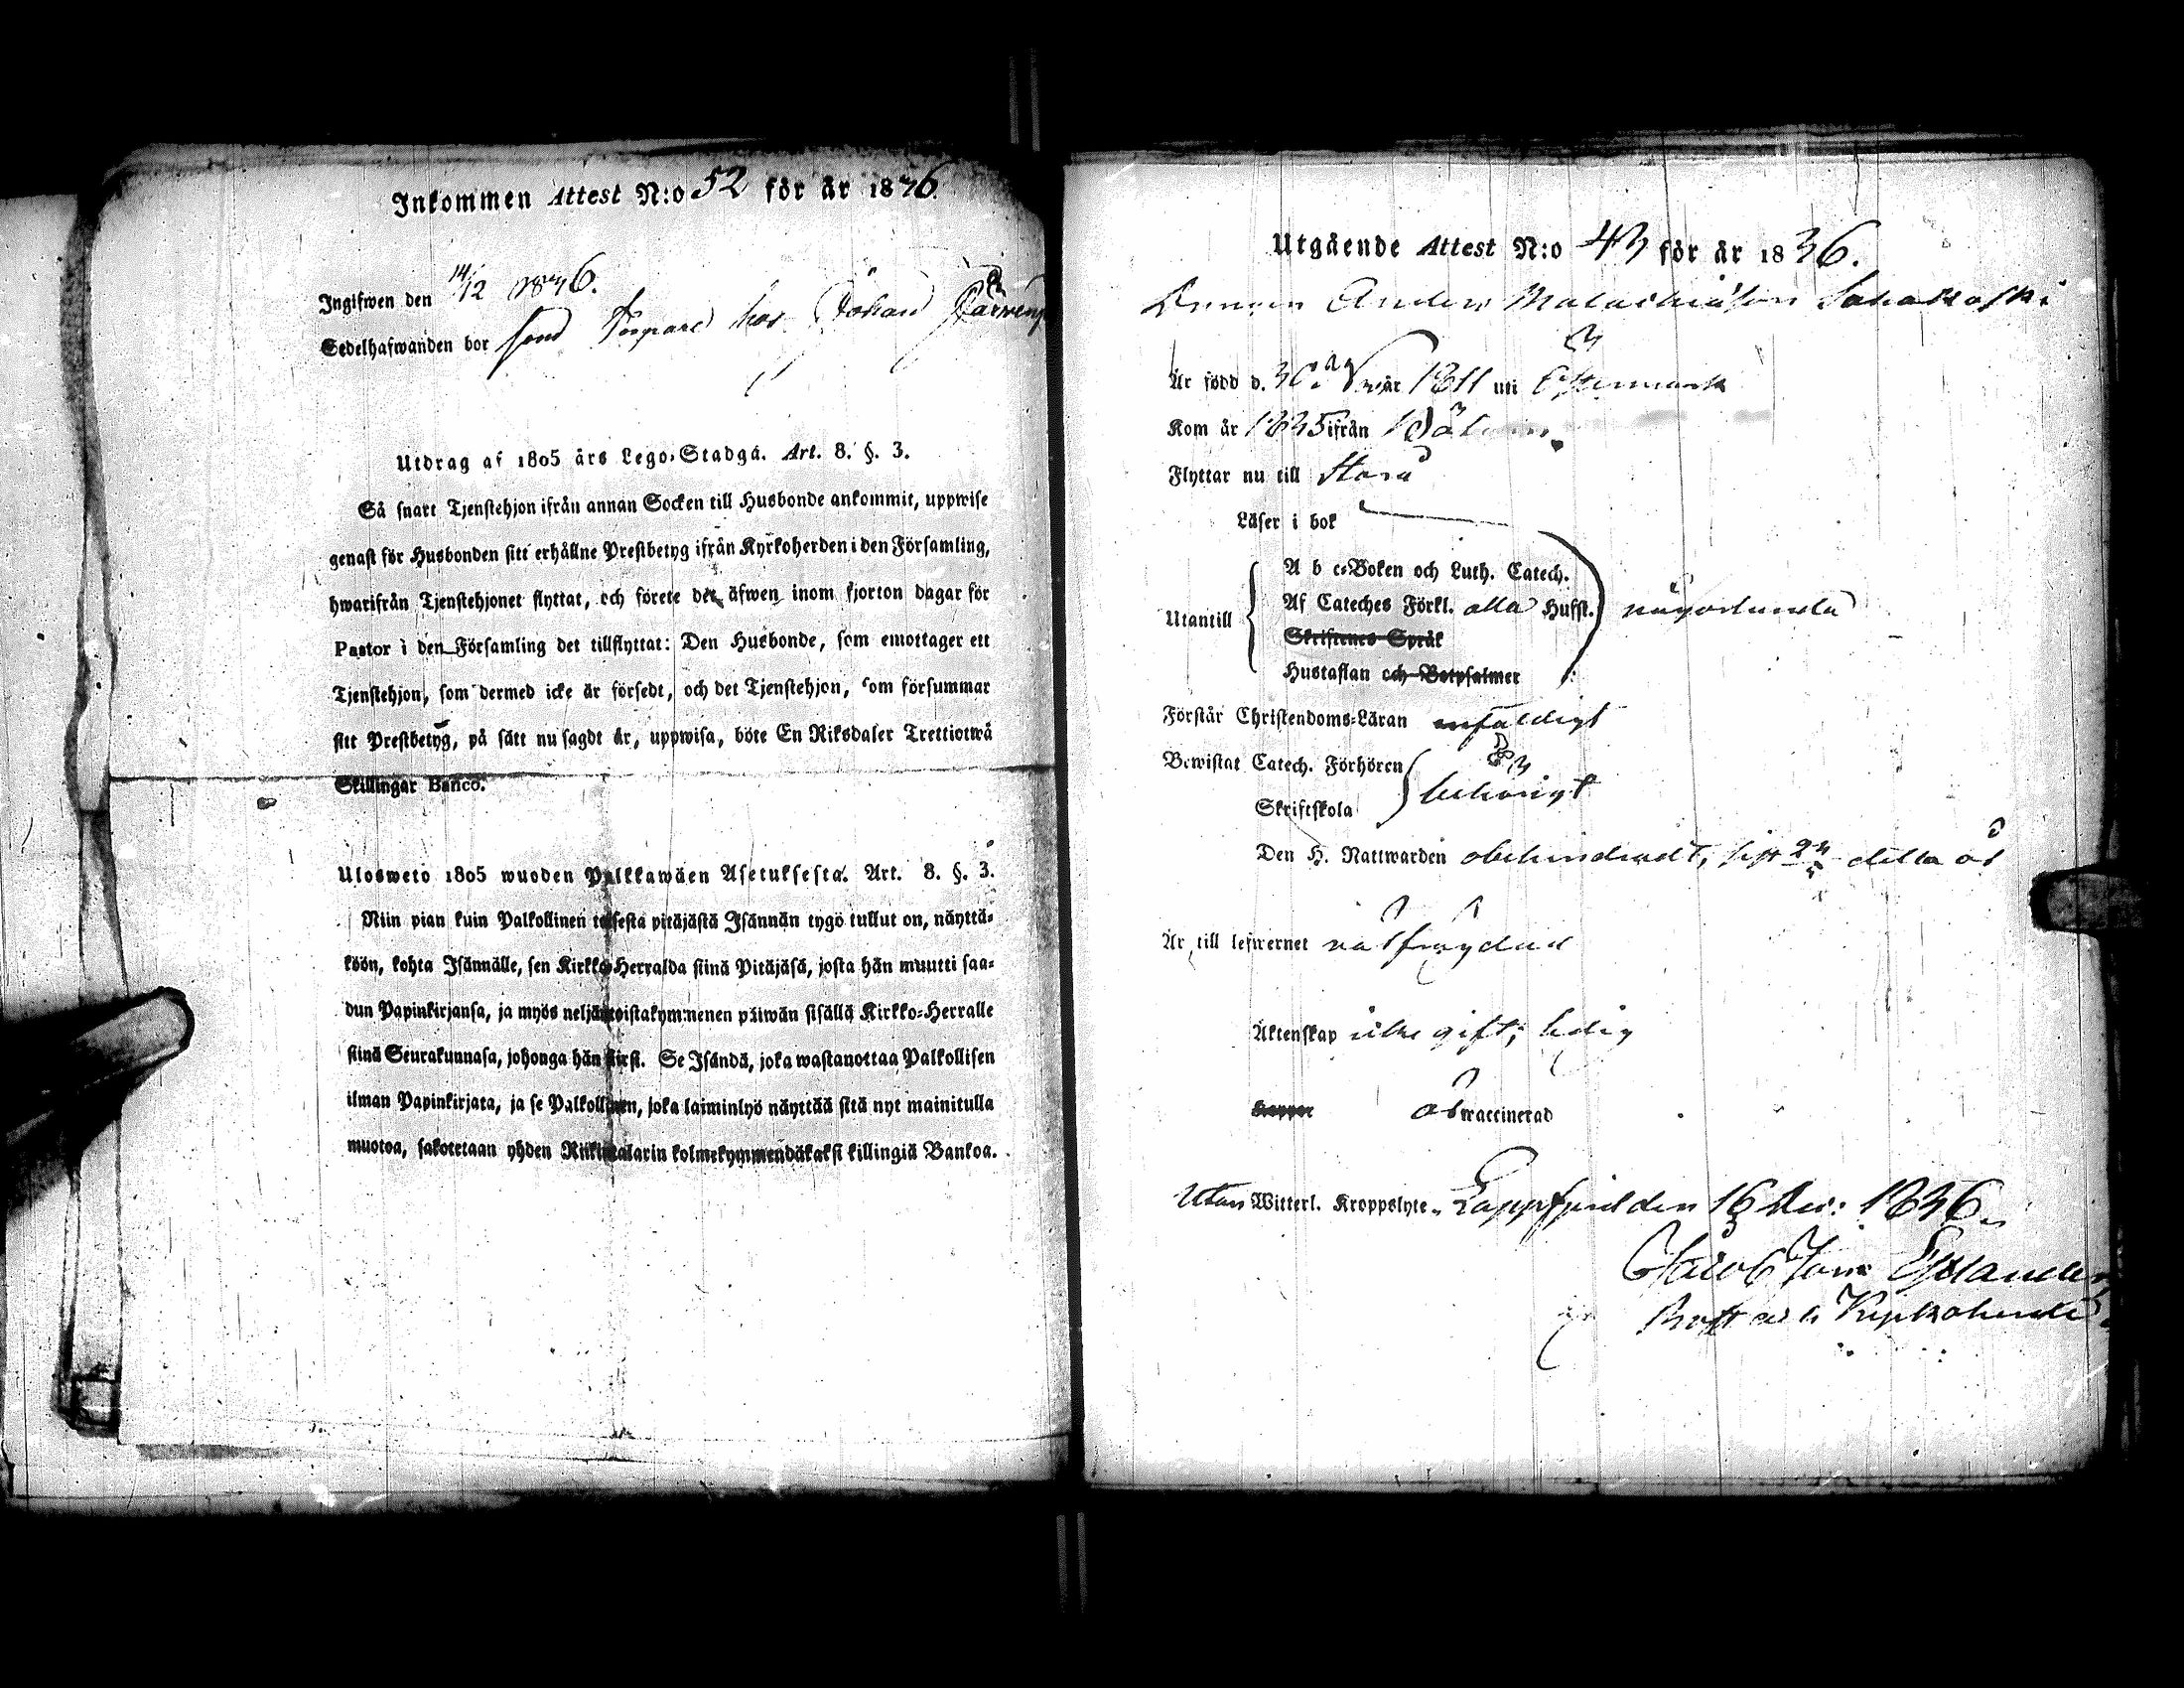 Inkommen Attest N:o 52 för år 1836.
Ingifwen den 14/12 1836.
Sedelhafwanden bor som Torpare hos Johan
Utdrag af 1805 års Lego-Stadga. Art. 8. §. 3.
Så snart Tjenstehjon ifrån annan Socken till Husbonde ankommit, uppwise
genast för Husbonden sitt erhållne Prestbetyg ifrån Kyrkoherden i den Församling,
hwarifrån Tjenstehjonet flyttat, och förete det äfwen inom fjorton dagar för
Pastor i den Församling det tillflyttat: Den Husbonde, som emottager ett
Tjenstehjon, som dermed icke är försedt, och det Tjenstehjon, som försummar
sitt Prestbetyg, på sätt nu sagdt är, uppwisa, böte En Riksdaler Trettiotwå
Skillingar Banco.
Ulosweto 1805 wuoden Palkkawäen Asetuksesta. Art. 8. §. 3.
Niin pian kuin Palkollinen toisesta pitäjästä Isännän tygö tullut on, näyttä-
köön, kohta Isännälle, sen Kirkko-Herralda siinä Pitäjäsä, josta hän muutti saa-
dun Papinkirjansa, ja myös neljäntoistakymmenen päiwän sisällä Kirkko-Herralle
siinä Seurakunnasa, johonga hän siirsi. Se Isändä, joka wastanottaa Palkollisen
ilman Papinkirjata, ja se Palkollinen, joka laiminlyö näyttää sitä nyt mainitulla
muotoa, sakotetaan yhden Riikintalarin kolmekymmendäkaksi killingiä Bankoa.
Utgående Attest N:o 43 för år 1836.
Drängen Anders Malachiasson
Är född d. 30 Nov. år 1811 uti Östermark
Kom år 1835 ifrån
Flyttar nu till Storå
Läser i bok
Utantill
A b c-Boken och Luth. Catech.
Af Cateches Förkl. alla Hufst. någorlunda
Skriftenes Språk
Hustaflan och Botpsalmer
Förstår Christendoms-Läran enfaldigt
Bewistat Catech. Förhören
Skriftskola behörigt
Den H. Nattwarden obehindradt, sist detta år
Är till lefwernet välfrejdad
Äktenskap icke gift; ledig
Koppor är waccinerad
Utan Witterl. Kroppslyte. Lappfjerd den 16 Nov: 1836.
Jacob Jona Estlander
Prost och Kyrkoherde